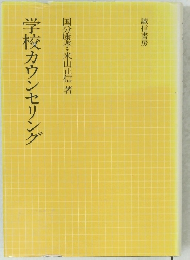 学校カウンセリング
国分康孝・米山正信 著
誠信書房